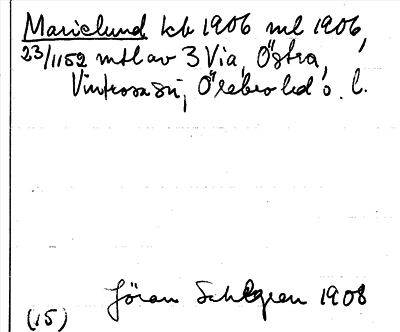 Marielund kb 1906 ml 1906,
23/1152 mtl av 3 Via, Östra,
Vintrosa sn, Örebro hd o. l.
Jöran Sahlgren 1908
(15)